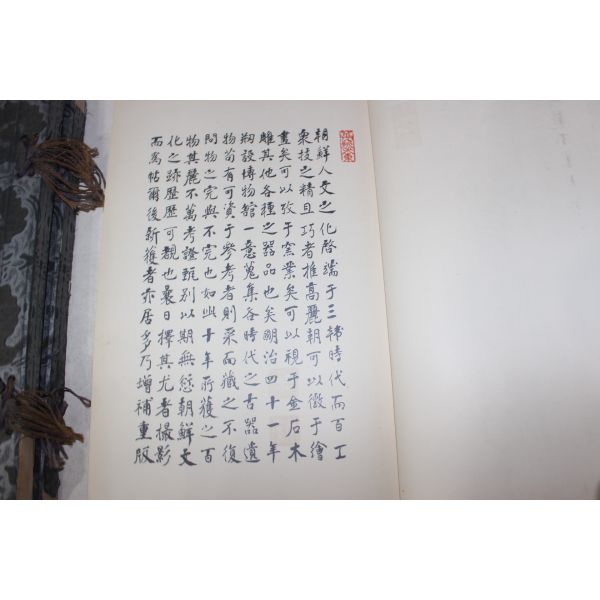 朝鮮人文之化啓端于三韓時代而百工
衆技之精且巧者推高麗朝可以徵于繪
畫矣可以攷于窯業矣可以視于金石木
雕其他各種之器品也矣明治四十一年
剏設博物館一意蒐集各時代之古器遺
物苟有可資于參考者則采而藏之不復
問物之完與不完也如此十年所獲之百
物其麗不萬考證甄別以期無愆朝鮮文
化之跡歷歷可觀也曩日擇其尤者撮影
而爲帖爾後新獲者亦居多乃增補重版